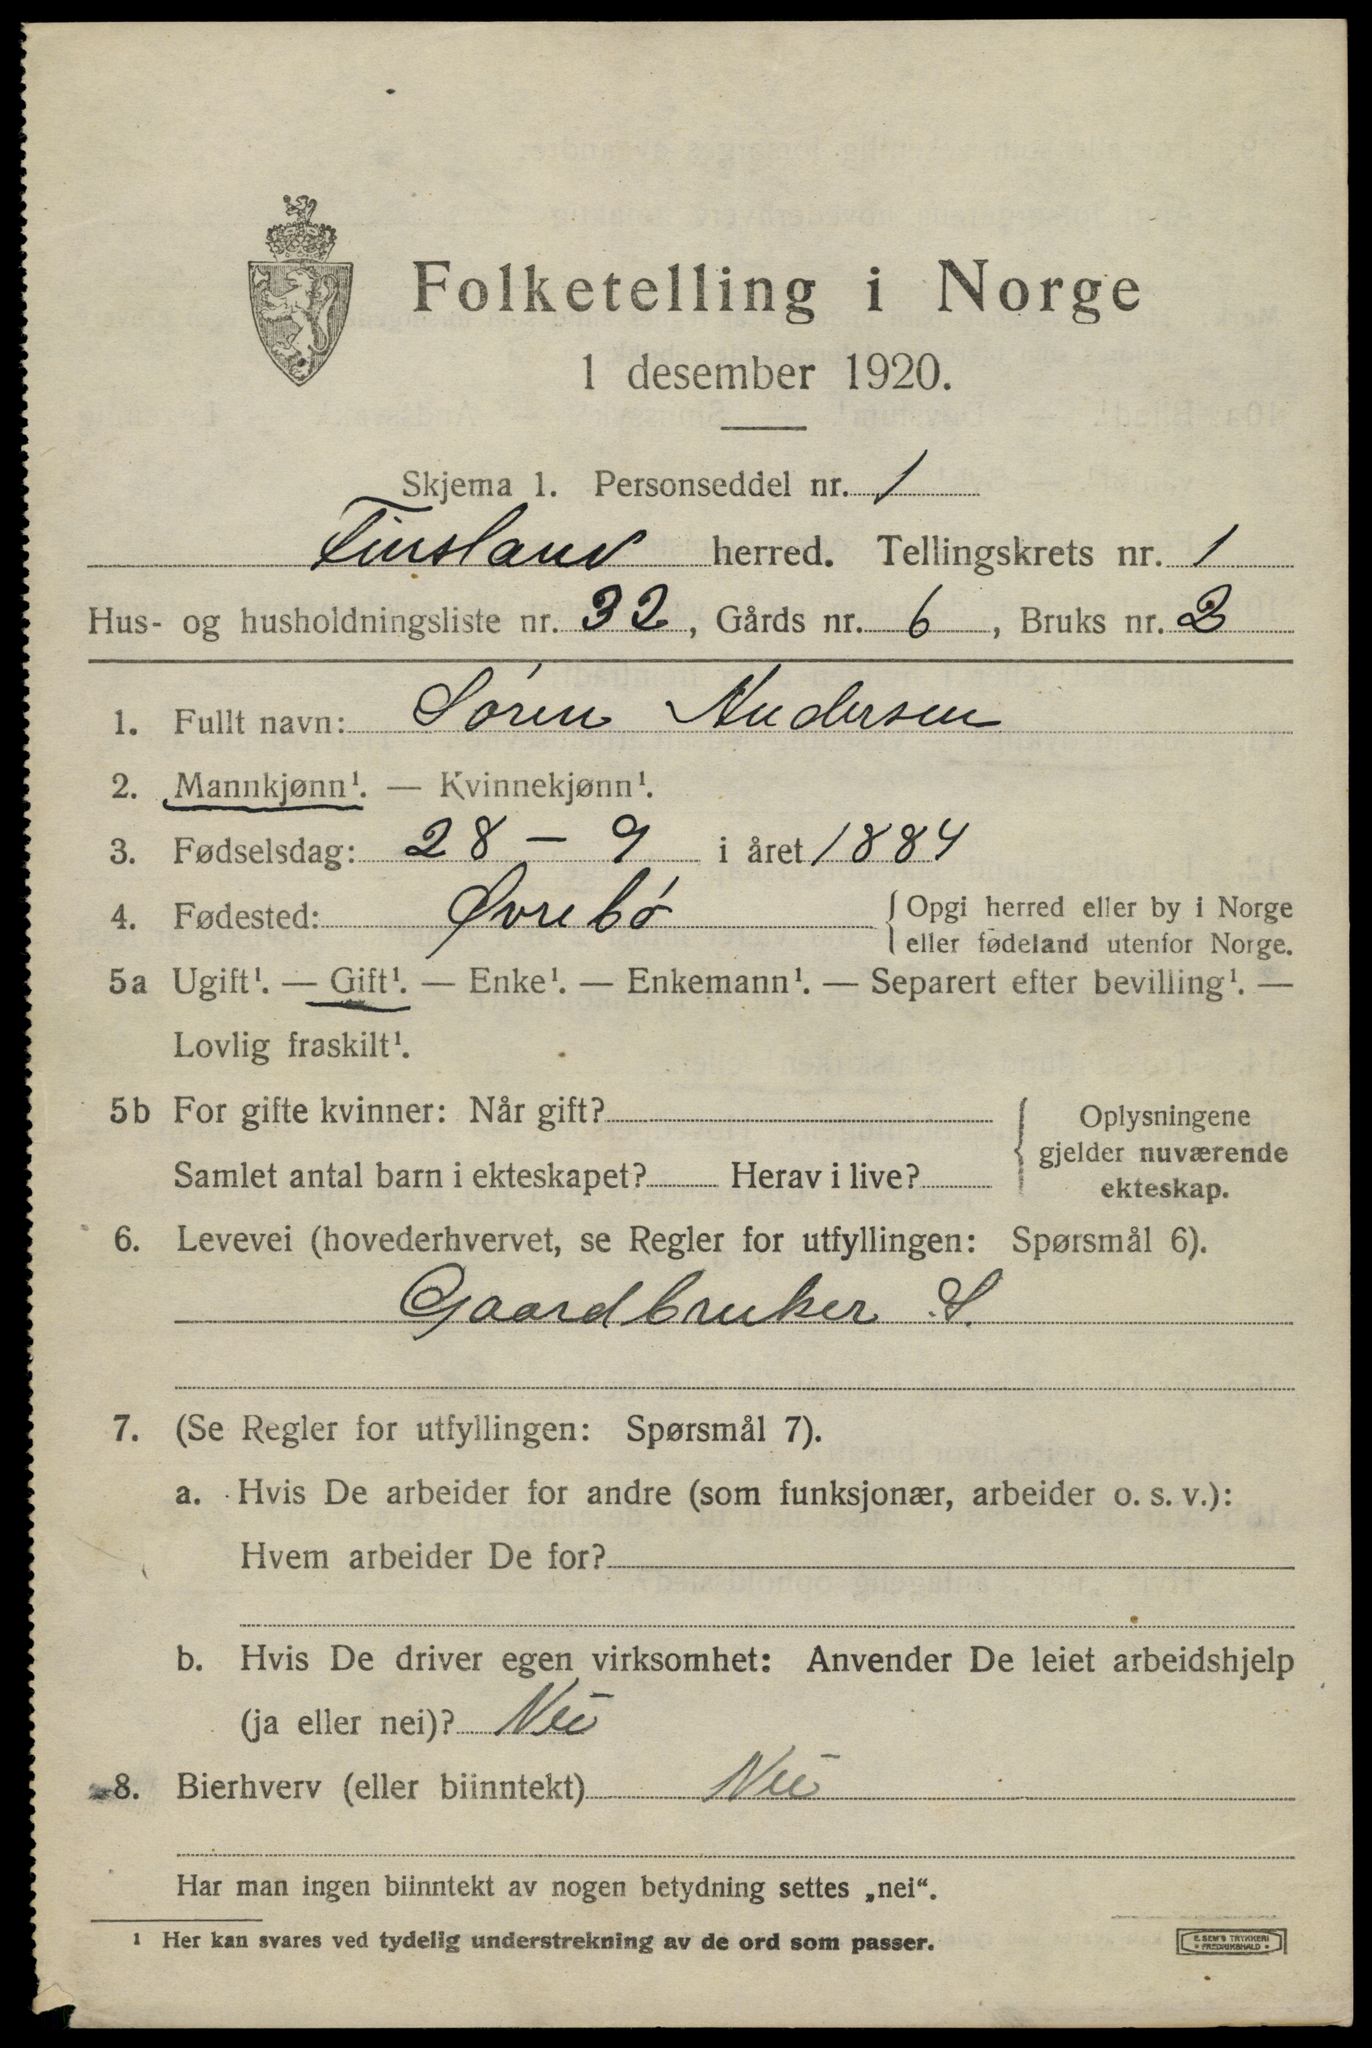 Folketelling i Norge
1 desember 1920.
Skjema 1. Personseddel nr. 1
Finsland herred. Tellingskrets nr. 1
Hus- og husholdningsliste nr. 32, Gårds nr. 6, Bruks nr. 2
1. Fullt navn: Søren Andersen
2. Mannkjønn¹. — Kvinnekjønn¹.
3. Fødselsdag: 28 – 9 i året 1884
4. Fødested: Øvrebø { Opgi herred eller by i Norge
eller fødeland utenfor Norge.
5a Ugift¹. — Gift¹. — Enke¹. — Enkemann¹. — Separert efter bevilling¹. —
Lovlig fraskilt¹.
5b For gifte kvinner: Når gift? { Oplysningene
gjelder nuværende
Samlet antal barn i ekteskapet? Herav i live? ekteskap.
6. Levevei (hovederhvervet, se Regler for utfyllingen: Spørsmål 6).
Gaardbruker S.
7. (Se Regler for utfyllingen: Spørsmål 7).
a. Hvis De arbeider for andre (som funksjonær, arbeider o. s. v.):
Hvem arbeider De for?
b. Hvis De driver egen virksomhet: Anvender De leiet arbeidshjelp
(ja eller nei)? Nei
8. Bierhverv (eller biinntekt) Nei
Har man ingen biinntekt av nogen betydning settes „nei“.
¹ Her kan svares ved tydelig understrekning av de ord som passer.
E. SEM'S TRYKKERI
FREDRIKSHALD